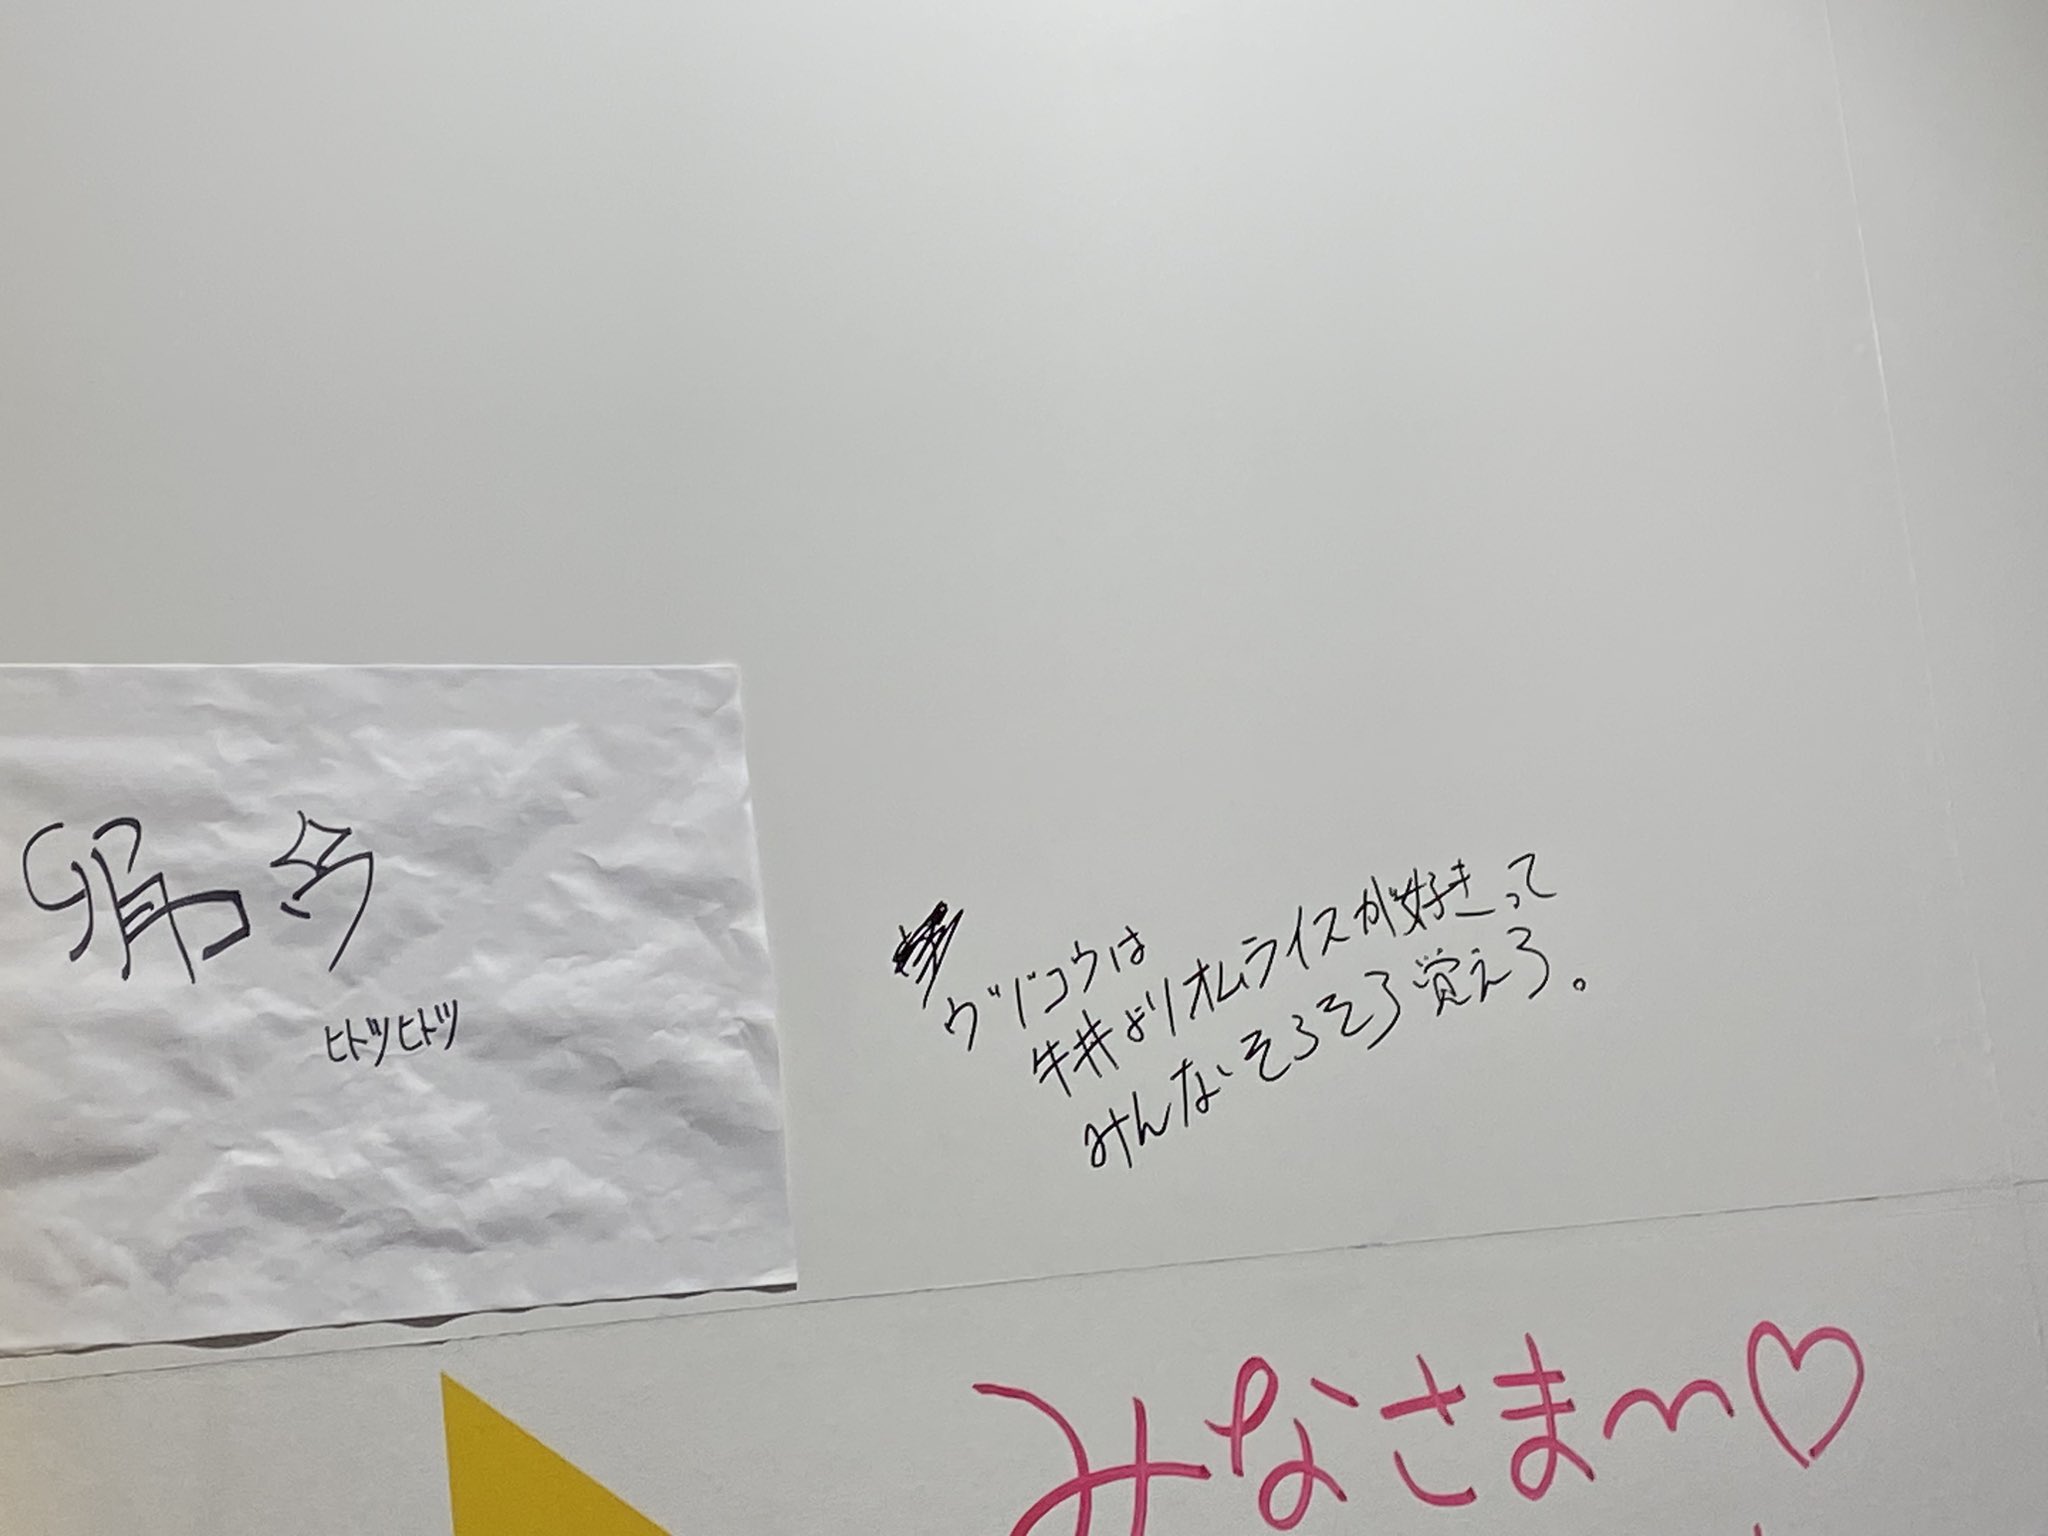 ヒトツヒトツ
ヴバコウは
牛丼よりオムライスが好きって
みんなそろそろ覚えろ。
みなさま〜♡